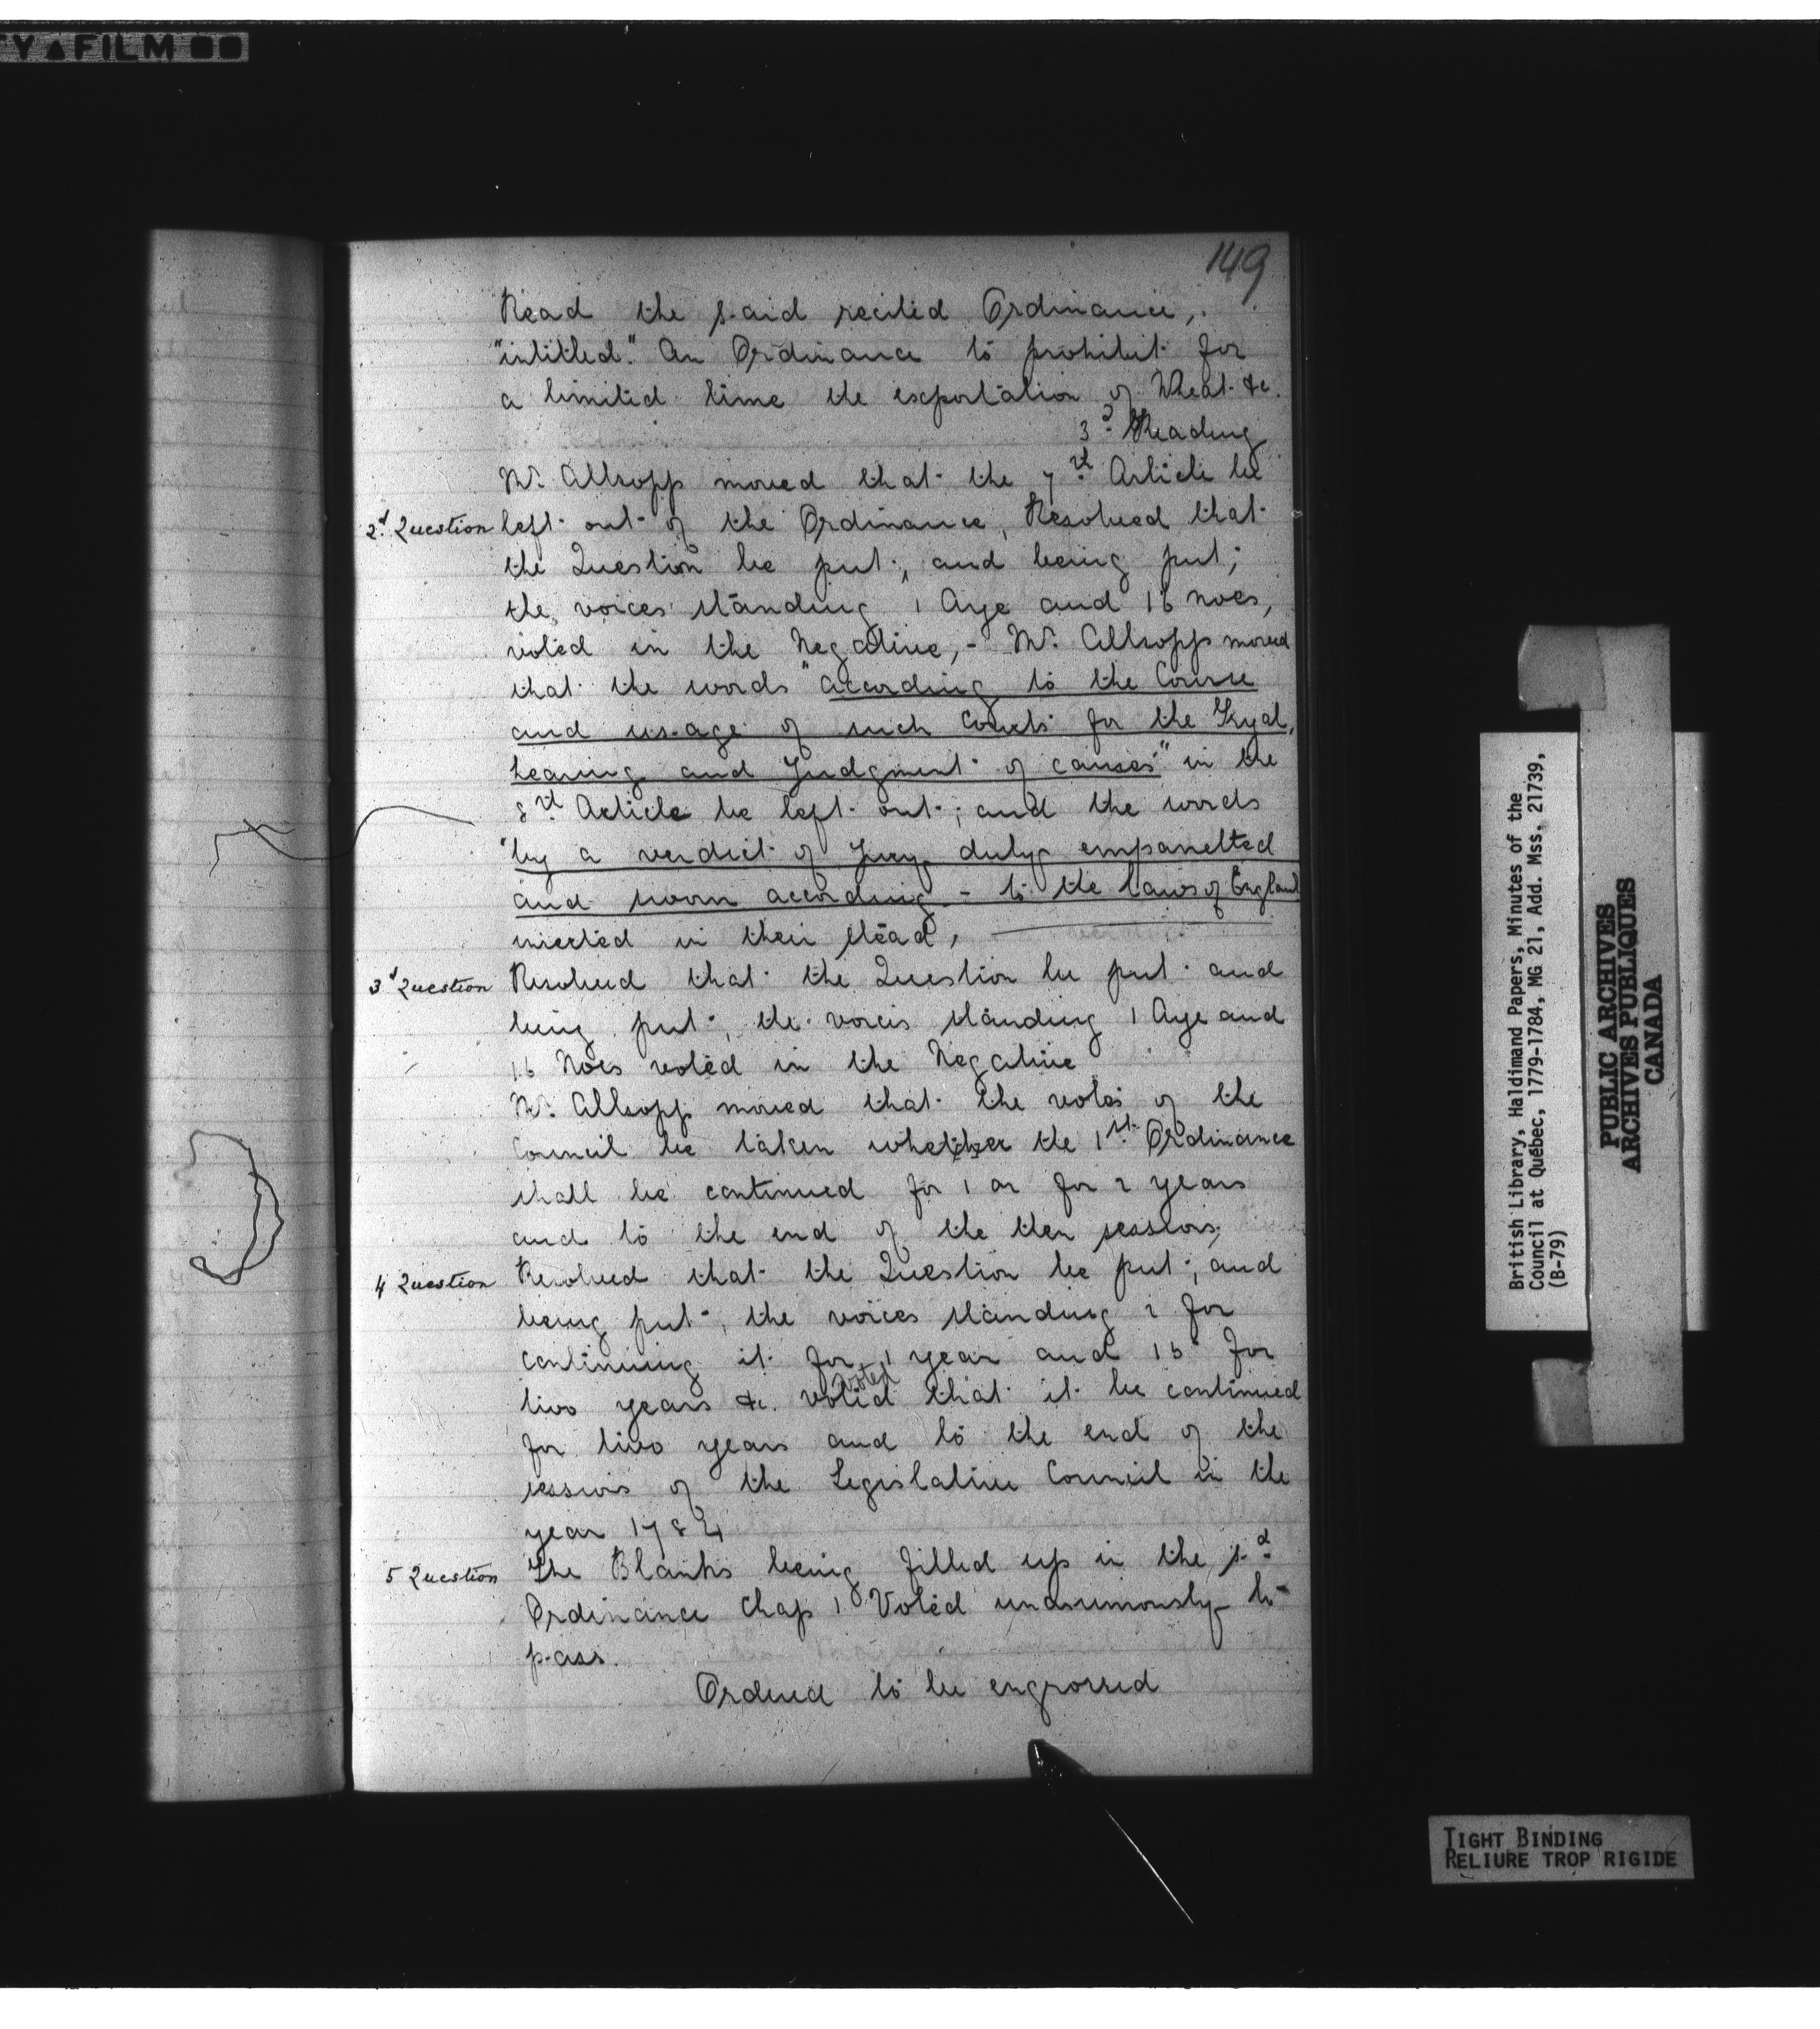 Y▲FILM
149
Read the said recited Ordinance,
"intitled." An Ordinance to prohibit for
a limited time the exportation of Wheat &c.
3d Reading
Mr. Allsopp moved that the 7th Article be
2d Question left out of the Ordinance, Resolved that
the Question be put, and being put;
the voices standing 1 Aye and 16 noes,
voted in the Negative, - Mr. Allsopp moved
that the words "according to the Course
and usage of such Courts for the Tryal,
hearing and Judgment of causes" in the
8th Article be left out; and the words
"by a verdict of Jury duly empanelled
and sworn according - to the laws of England
inserted in their stead,
3d Question Resolved that the Question be put and
being put, the voices standing 1 Aye and
16 Noes voted in the Negative
Mr. Allsopp moved that the votes of the
Council be taken whether the 1st Ordinance
shall be continued for 1 or for 2 years
and to the end of the then session,
4 Question Resolved that the Question be put, and
being put, the voices standing 2 for
continuing it for 1 year and 15 for
voted
two years &c. voted that it be continued
for two years and to the end of the
session of the Legislative Council in the
year 1784
5 Question The Blanks being filled up in the sd
Ordinance Chap 1 Voted unanimously to
pass.
Ordered to be engrossed
British Library, Haldimand Papers, Minutes of the
Council at Québec, 1779-1784, MG 21, Add. Mss. 21739,
(B-79)
PUBLIC ARCHIVES
ARCHIVES PUBLIQUES
CANADA
TIGHT BINDING
RELIURE TROP RIGIDE